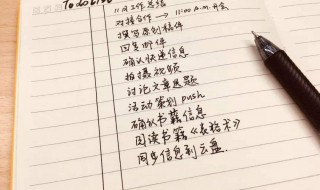 To do List
11月工作总结
对接合作 → 11:00 a.m. 开会
撰写原创稿件
回复邮件
确认快递信息
拍摄视频
讨论文章选题
活动策划 push
确认书籍信息
阅读书籍《表达术》
同步信息到云盘